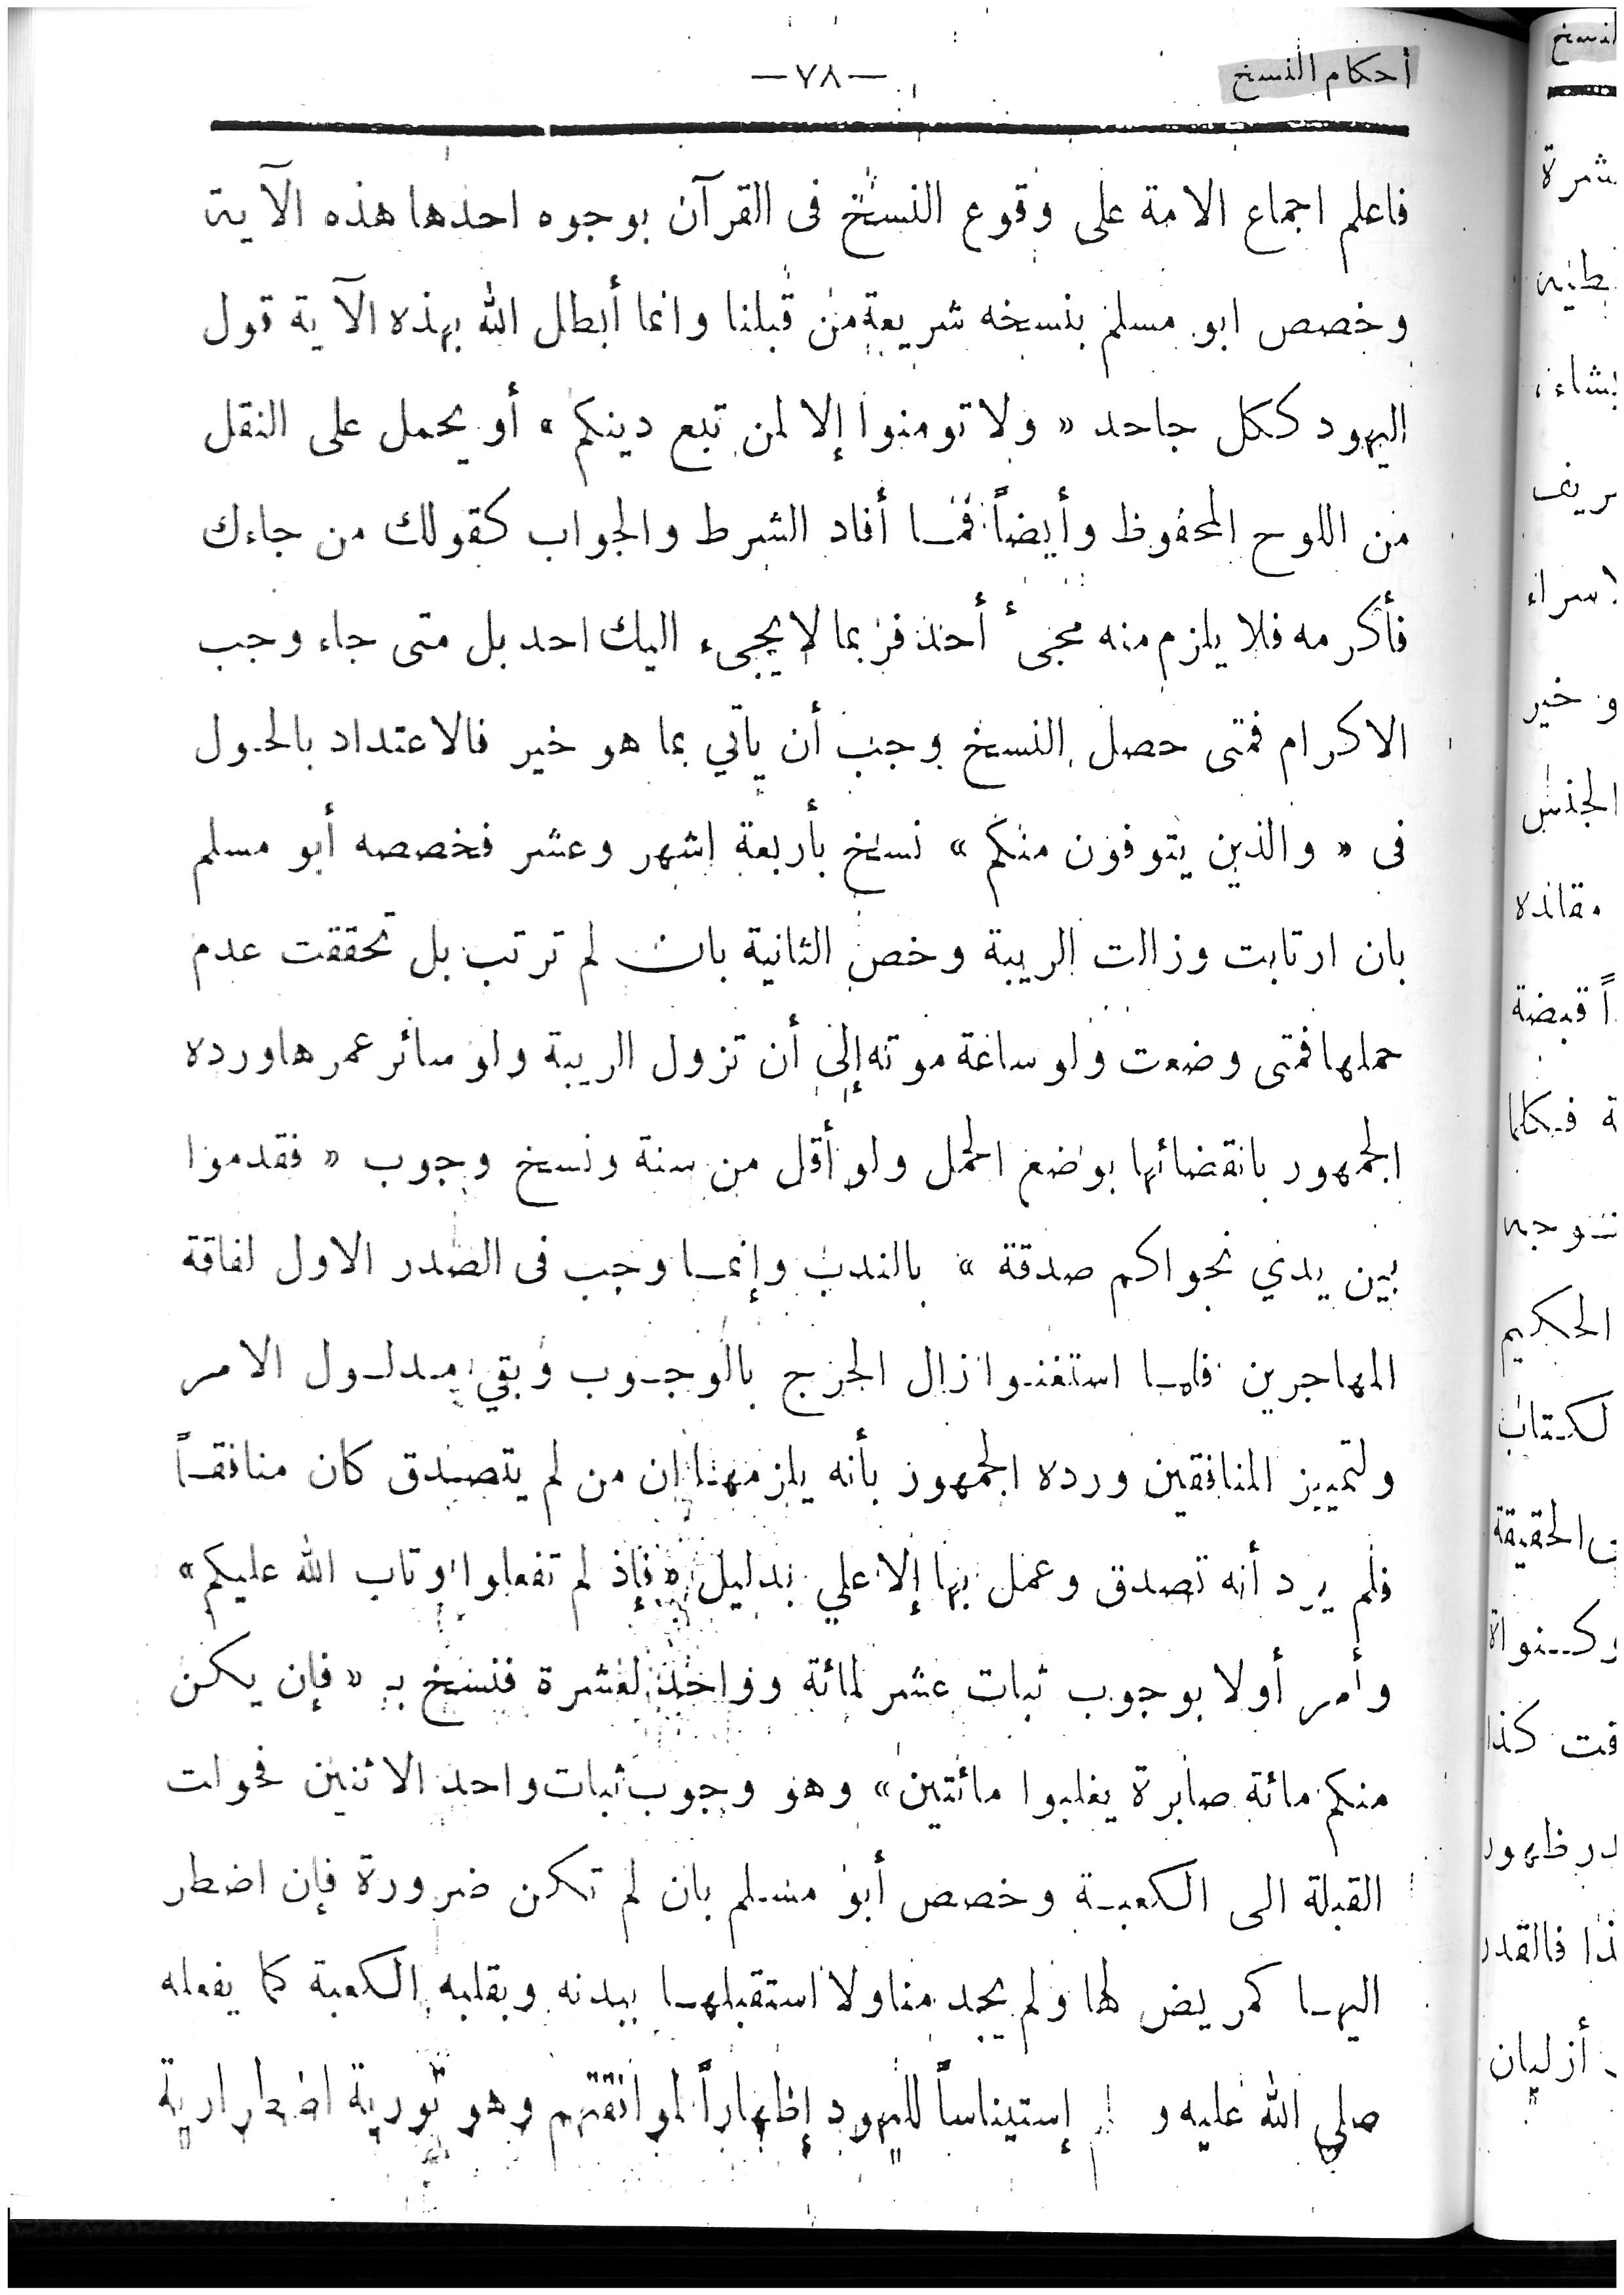 أحكام النسخ
—٧٨—
فاعلم اجماع الامة على وقوع النسخ فى القرآن بوجوه احدها هذه الآية
وخصص ابو مسلم بنسخه شريعة من قبلنا وانما أبطل الله بهذه الآية قول
اليهود ككل جاحد « ولا تومنوا إلا لمن تبع دينكم » أو يحمل على النقل
من اللوح المحفوظ وأيضاً فمـا أفاد الشرط والجواب كقولك من جاءك
فأكرمه فلا يلزم منه مجىء أحد فربما لا يجىء اليك احد بل متى جاء وجب
الاكرام فمتى حصل النسخ وجب أن يأتي بما هو خير فالاعتداد بالحول
فى « والذين يتوفون منكم » نسخ بأربعة اشهر وعشر فخصصه أبو مسلم
بان ارتابت وزالت الريبة وخص الثانية بان لم ترتب بل تحققت عدم
حملها فمتى وضعت ولو ساعة موته إلى أن تزول الريبة ولو سائر عمرها ورده
الجمهور بانقضائها بوضع الحمل ولو أقل من سنة ونسخ وجوب « فقدموا
بين يدي نجواكم صدقة » بالندب وإنمـا وجب فى الصدر الاول لفاقة
المهاجرين فلمـا استغنـوا زال الحرج بالوجـوب وبقي مـدلـول الامر
ولتمييز المنافقين ورده الجمهور بأنه يلزمهـا إن من لم يتصـدق كان منافقـاً
فلم يرد أنه تصدق وعمل بها إلا علي بدليل « فإذ لم تفعلوا وتاب الله عليكم »
وأمر أولا بوجوب ثبات عشر لمائة وواحد لعشرة فنسخ بـ « فإن يكن
منكم مائة صابرة يغلبوا مائتين » وهو وجوب ثبات واحد الاثنين فحولت
القبلة الى الكعبـة وخصص أبو مسلم بان لم تكن ضرورة فإن اضطر
اليهـا كمريض لها ولم يجد مناولا استقبلهـا ببدنه وبقلبه الكعبة كما يفعله
صلي الله عليه و إستيناساً لليهود إظهاراً لموافقتهم وهو تورية اضطرارية
لنسخ
بشاء
لاسراء
و خير
الجنس
قبضة
الحكيم
الحقيقة
كذا
ظهور
فالقدر
أزليان